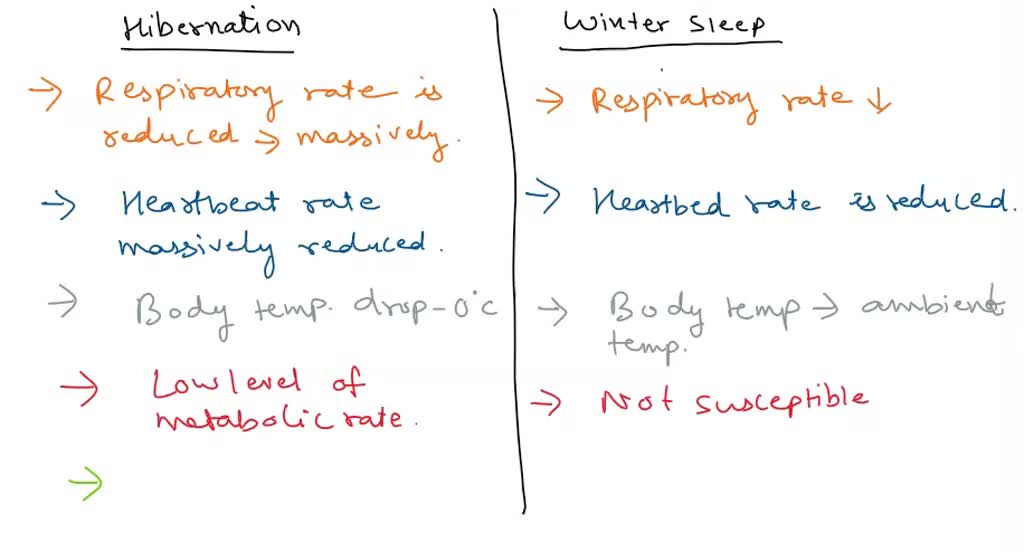 Hibernation
→ Respiratory rate is
reduced → massively.
→ Heartbeat rate
massively reduced.
→ Body temp. drop - 0°c
→ Low level of
metabolic rate.
→
Winter Sleep
→ Respiratory rate ↓
→ Heartbed rate is reduced.
→ Body temp → ambient
temp.
→ Not susceptible